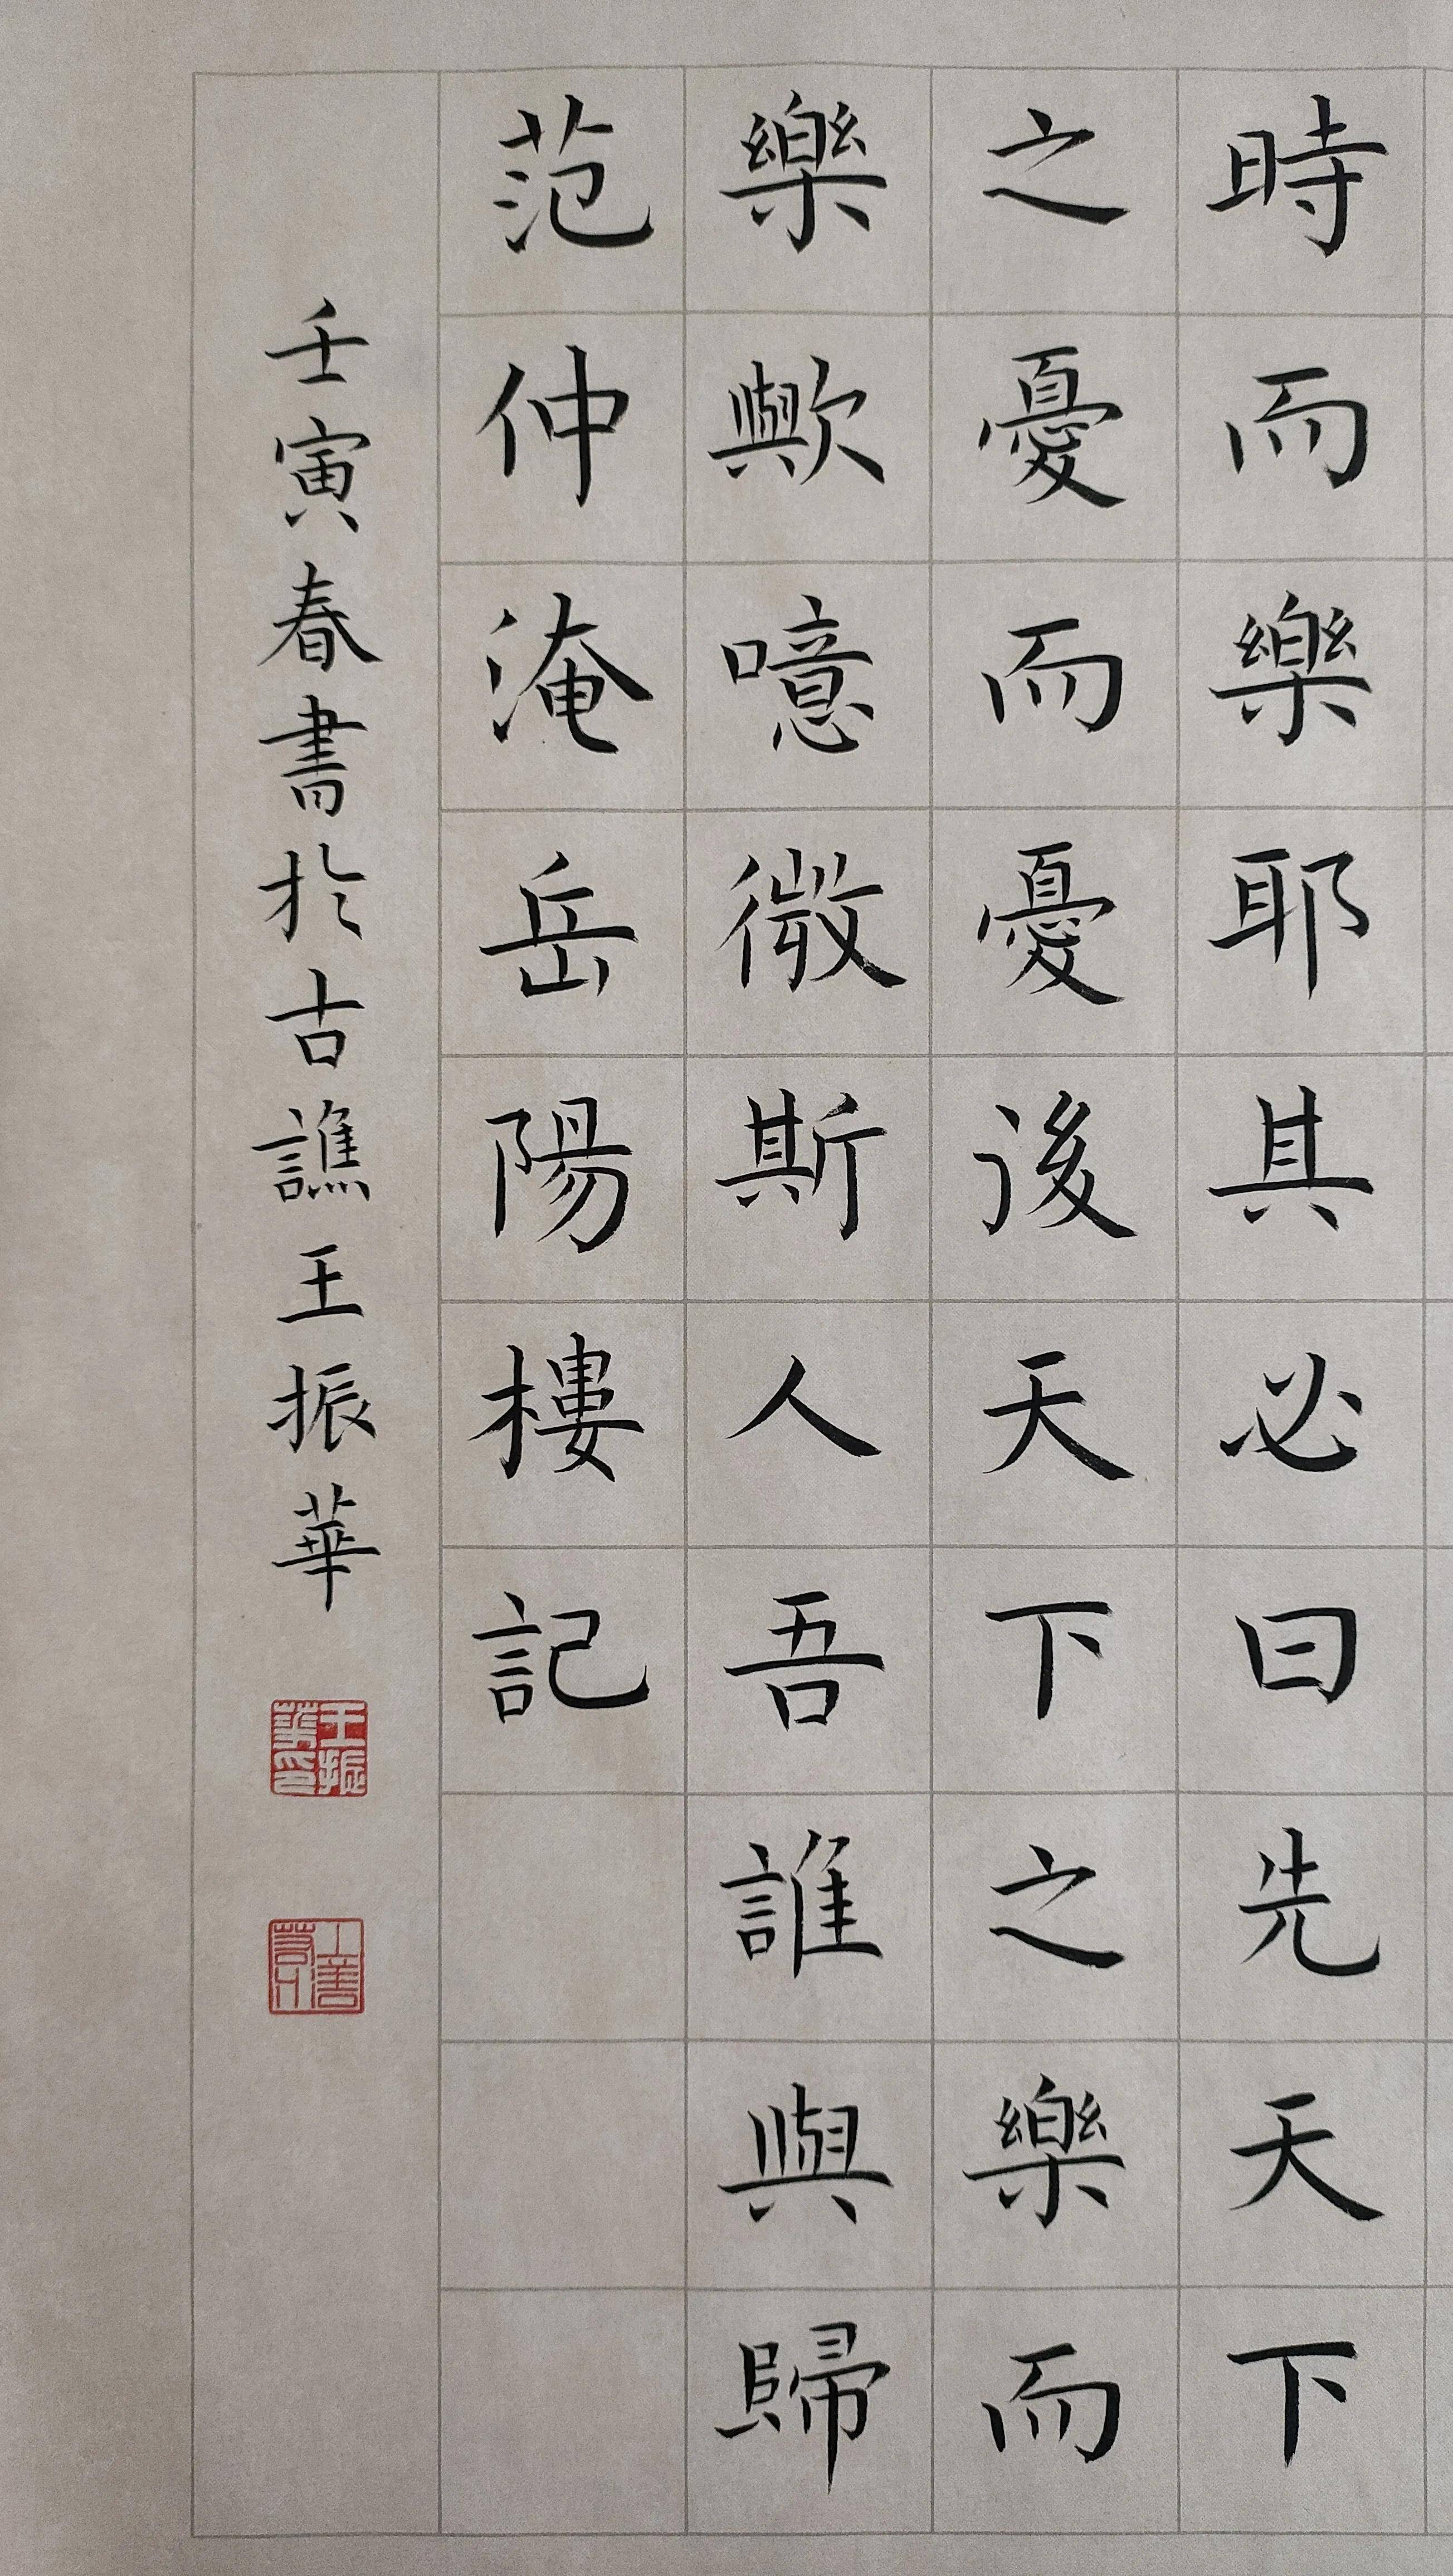 時而樂耶其必曰先天下
之憂而憂後天下之樂而
樂歟噫微斯人吾誰與歸
范仲淹岳陽樓記
壬寅春書於古譙王振華
王振華印